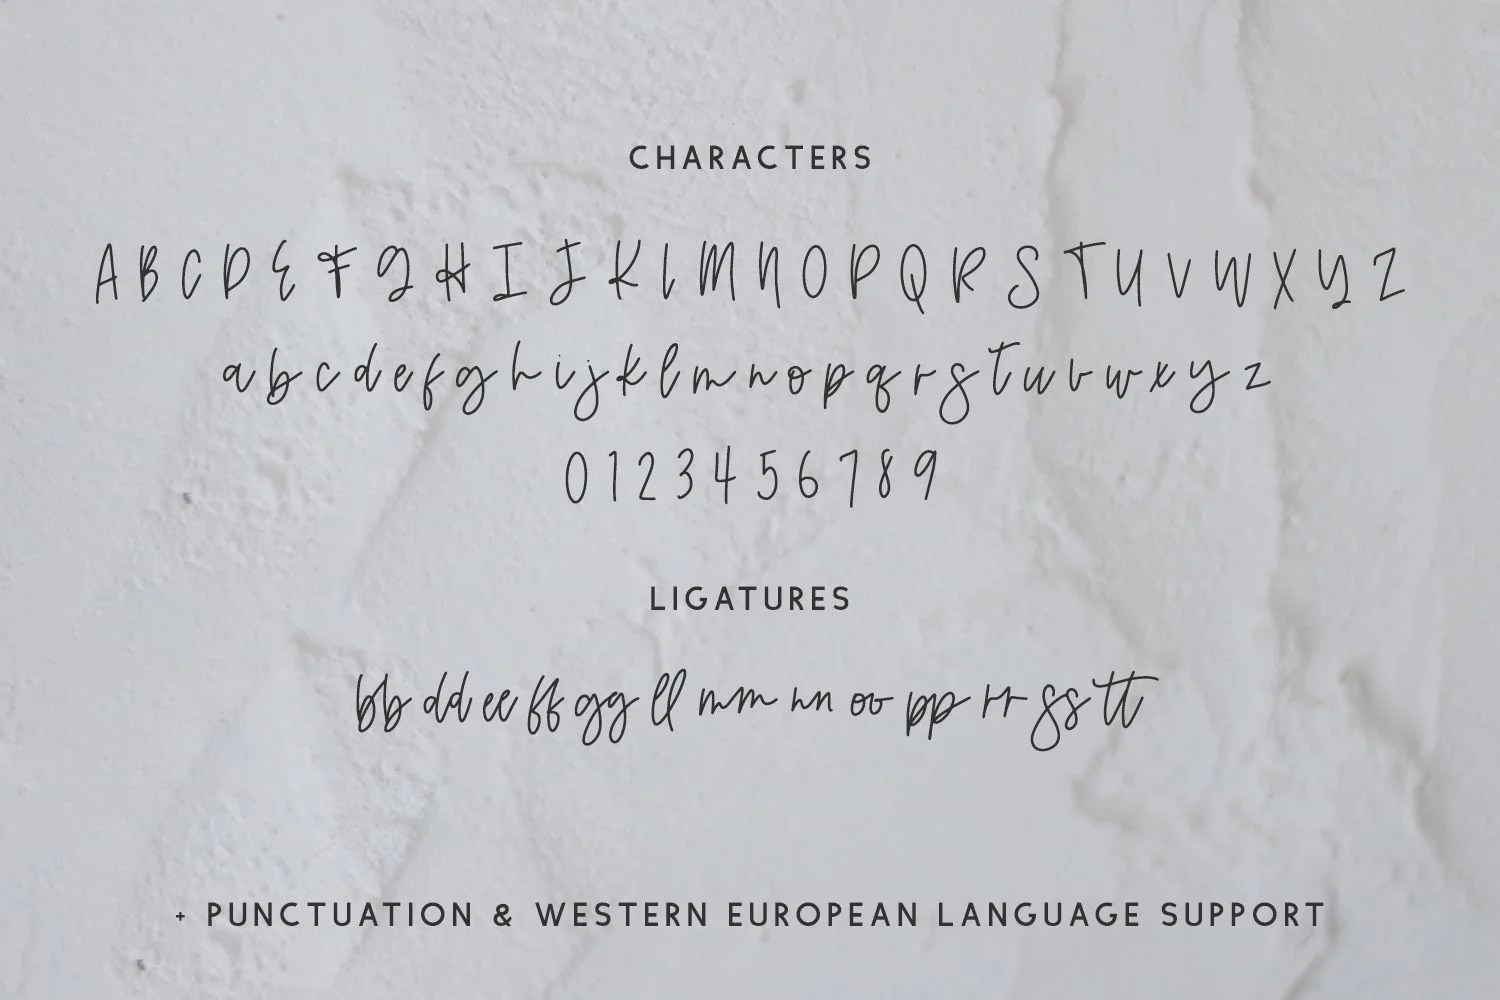 CHARACTERS
A B C D E F G H I J K L M N O P Q R S T U V W X Y Z
a b c d e f g h i j k l m n o p q r s t u v w x y z
0 1 2 3 4 5 6 7 8 9
LIGATURES
bb dd ee ff gg ll mm nn oo pp rr ss tt
+ PUNCTUATION & WESTERN EUROPEAN LANGUAGE SUPPORT